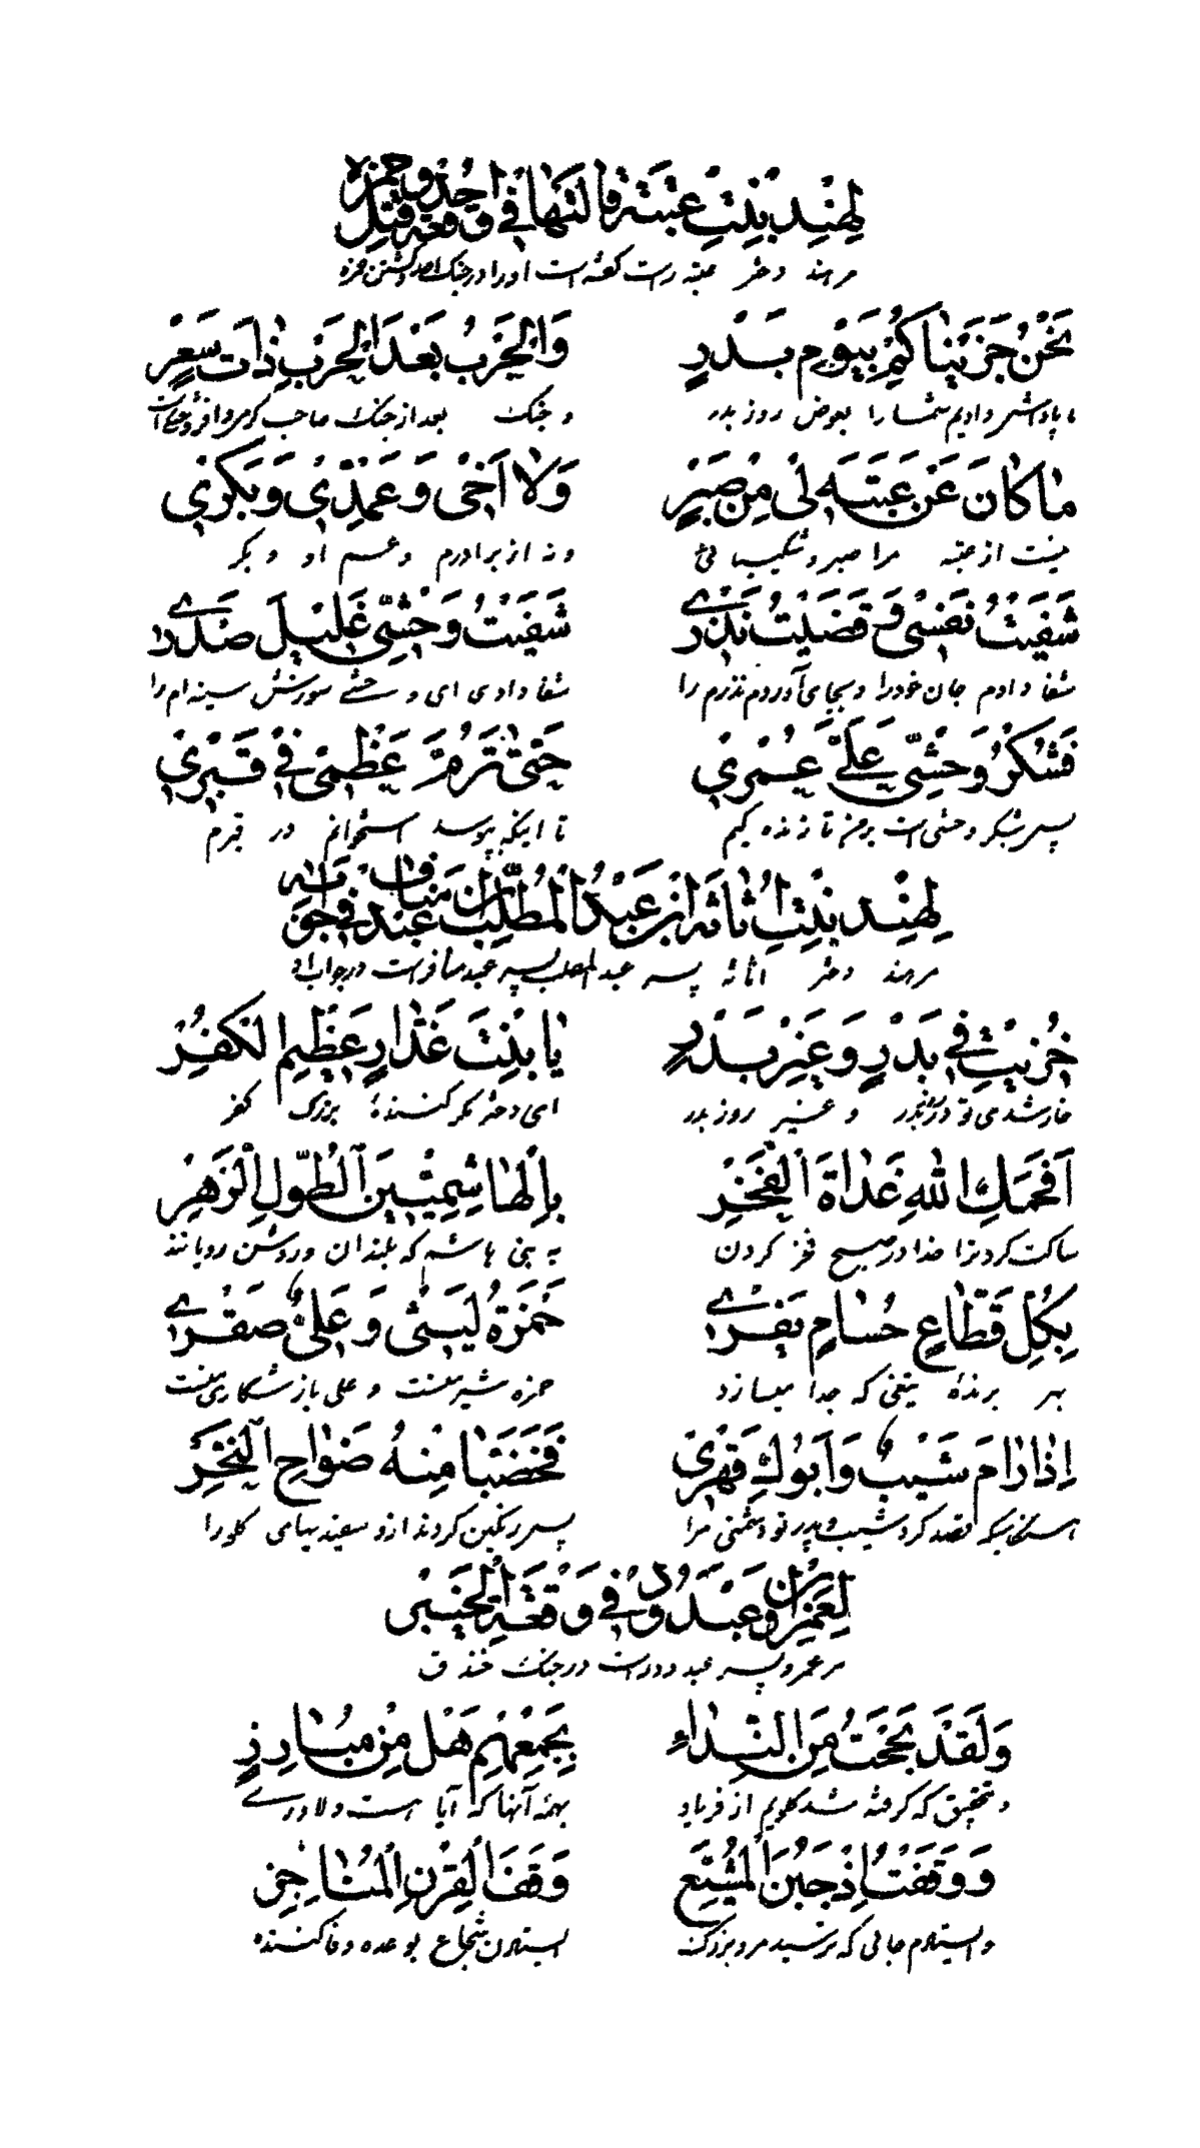 لِهِنْدِ بِنْتِ عُتْبَةَ قَالَتْهَا فِي وَقْعَةِ اُحُدٍ وَقَتْلِ حَمْزَه
مر هند دختر عتبه راست گفته است او را در جنگ احد و کشتن حمزه
نَحْنُ جَزَيْنَاكُمْ بِيَوْمِ بَدْرٍ وَالْحَرْبُ بَعْدَ الْحَرْبِ ذَاتُ سَعْرٍ
ما پاداش دادیم شما را بعوض روز بدر و جنگ بعد از جنگ صاحب
مَا كَانَ عَنْ عُتْبَةَ لِي مِنْ صَبْرٍ وَلَا اَخِي وَعَمِّهِ وَبَكْرِي
نیست از عتبه مرا صبر و شکیبائی و نه از برادرم و عم او و بکر
شَفَيْتُ نَفْسِي وَ قَضَيْتُ نَذْرِي شَفَيْتَ وَحْشِيُّ غَلِيلَ صَدْرِي
شفا دادم جان خود را و بجای آوردم نذرم را شفا دادی ای وحشی سوزش سینه ام را
فَشُكْرُ وَحْشِيٍّ عَلَيَّ عُمْرِي حَتّٰى تَرُمَّ عَظْمِي فِي قَبْرِي
پس شکر وحشی است بر من تا زنده گیم تا اینکه بپوسد استخوانم در قبرم
لِهِنْدِ بِنْتِ اُثَاثَةَ ابْنِ عَبْدِ الْمُطَّلِبِ ابْنِ عَبْدِ مَنَافٍ فِي جَوَابِهَا
مر هند دختر اثاثه پسر عبد المطلب پسر عبد مناف راست در جواب او
خُزِيتِ فِي بَدْرٍ وَغَيْرِ بَدْرٍ يَا بِنْتَ غَدَّارٍ عَظِيمِ الْكُفْرِ
خار شدی تو در روز بدر و غیر روز بدر ای دختر مکر کننده بزرگ کفر
اَفْحَمَكِ اللهُ غَدَاةَ الْفَخْرِ بِالْهَاشِمِيِّينَ الطُّوَلِ الزُّهْرِ
ساکت کرد ترا خدا در صبح فخر کردن به بنی هاشم که بلندان و روشن رویانند
بِكُلِّ قَطَّاعٍ حُسَامٍ يَفْرِي حَمْزَةُ لَيْثِي وَ عَلِيٌّ صَقْرِي
بهر برنده تیغی که جدا میسازد حمزه شیر منست و علی باز شکاری منست
اِذْ رَامَ شَيْبٌ وَ اَبُوكِ قَهْرِي فَخَضَبَا مِنْهُ ضَوَاحِي النَّحْرِ
قصد کرد شیب و پدر تو دشمنی مرا پس رنگین کردند ازو سفیدیهای گلو را
لِعَمْرِو ابْنِ عَبْدِ وُدٍّ فِي وَقْعَةِ الْخَنْدَقِ
مر عمرو پسر عبد ود راست در جنگ خندق
وَلَقَدْ بَحِحْتُ مِنَ النِّدَاءِ بِجَمْعِهِمْ هَلْ مِنْ مُبَارِزٍ
و بتحقیق که گرفته شد گلویم از فریاد بهمه آنها که آیا است دلاوری
وَوَقَفْتُ اِذْ جَبُنَ الْمُشَيَّعُ وَقْفَ الْقِرْنِ الْمُنَاجِزِ
و ایستادم جائی که ترسید مرد بزرگ ایستادن شجاع بوعده وفا کننده